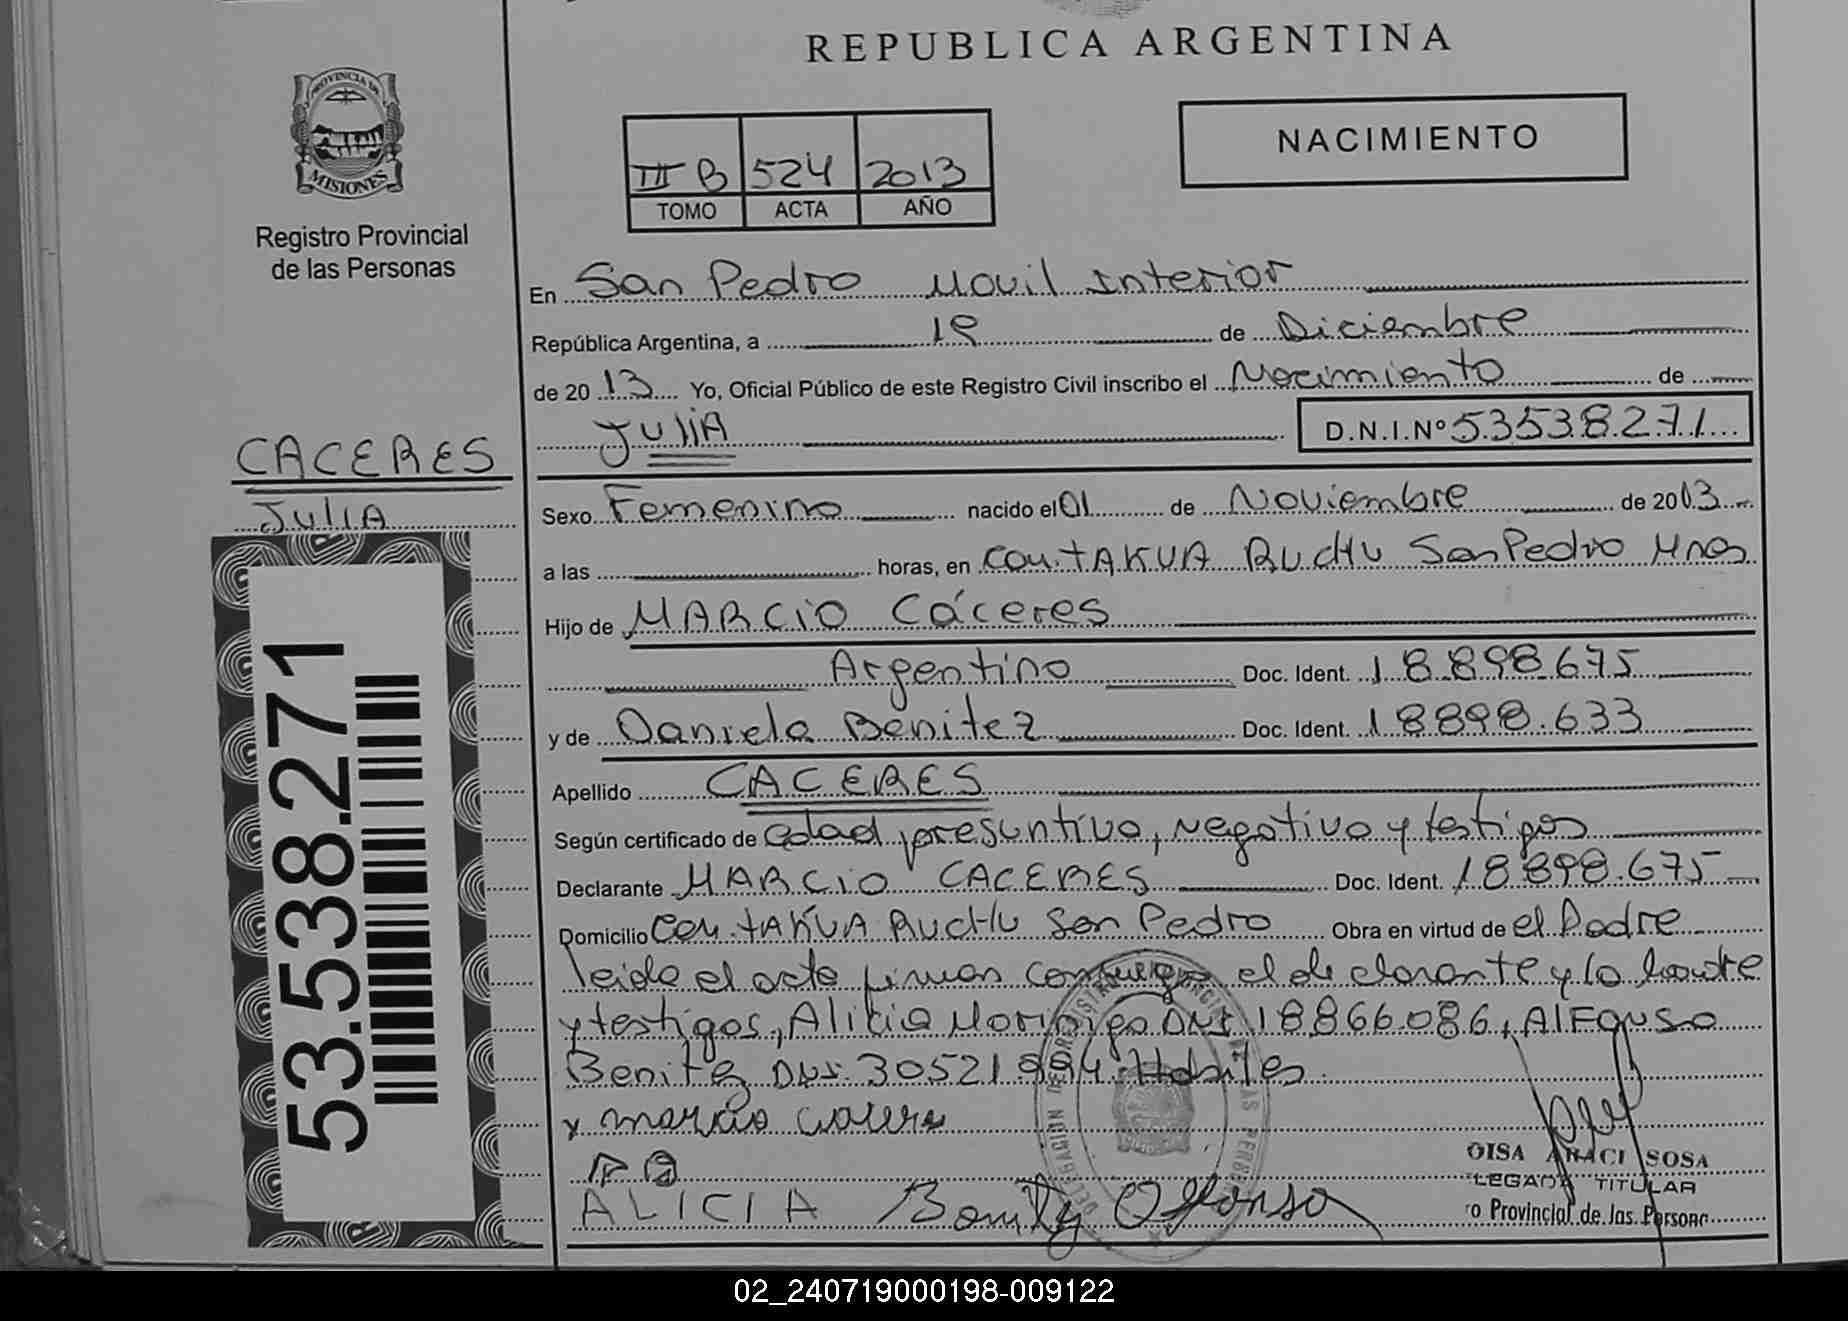 REPUBLICA ARGENTINA
PROVINCIA DE
MISIONES
Registro Provincial
de las Personas
III B 524 2013
TOMO ACTA AÑO
NACIMIENTO
En San Pedro Movil Interior
República Argentina, a 19 de Diciembre
de 2013 Yo, Oficial Público de este Registro Civil inscribo el Nacimiento de
Julia D.N.I.Nº 53538271
CACERES
Julia
53.538.271
Sexo Femenino nacido el 01 de Noviembre de 2013
a las horas, en Com. TAKUA RUCHU San Pedro Mnes
Hijo de MARCIO Cáceres
Argentino Doc. Ident. 18.898.675
y de Daniela Benitez Doc. Ident. 18898.633
Apellido CACERES
Según certificado de edad presuntiva, negativo y testigos
Declarante MARCIO CACERES Doc. Ident. 18898.675
Domicilio Com. TAKUA RUCHU San Pedro Obra en virtud de el Padre
leida el acta firman conmigo el declarante y la madre
y testigos, Alicia DNI 18866086, Alfonso
Benitez DNI 30521994 Habiles
x marcio
ALICIA Benitez Alfonso
OISA ARACI SOSA
LEGADA TITULAR
o Provincial de las Person
02_240719000198-009122